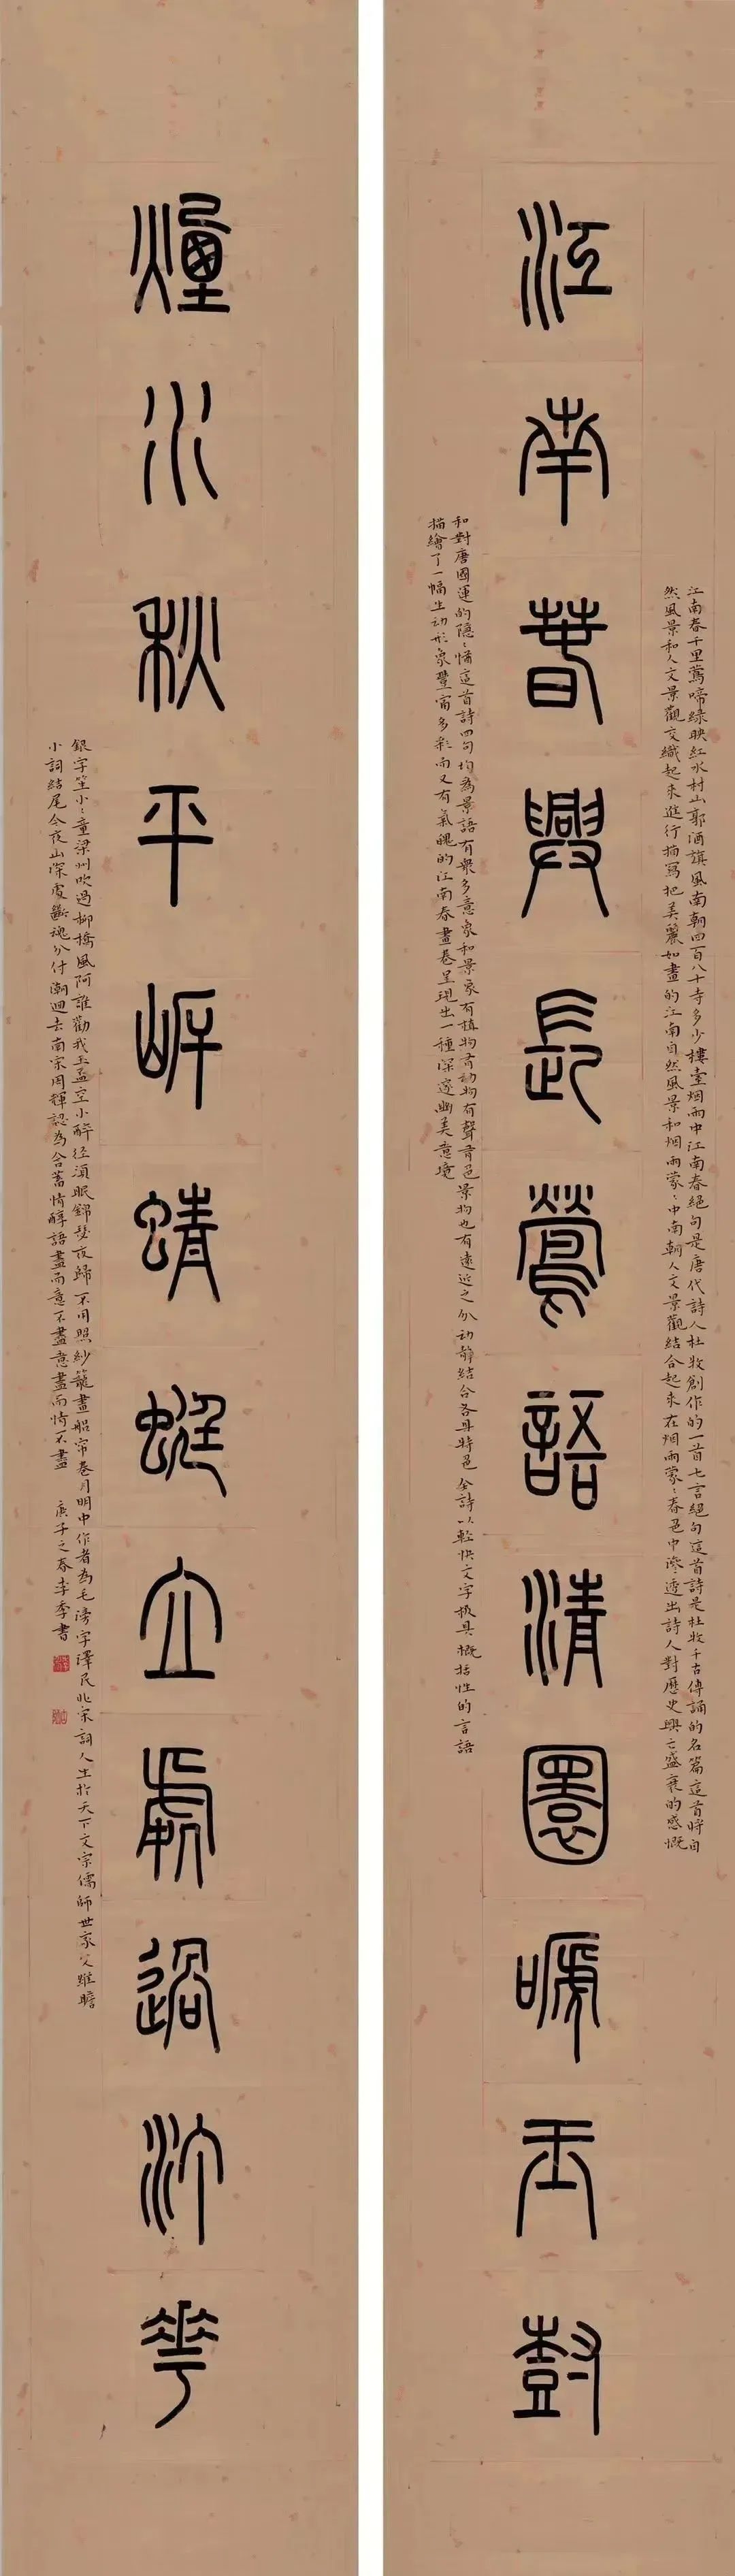 江南春千里鶯啼綠映紅水村山郭酒旗風南朝四百八十寺多少樓臺烟雨中江南春絕句是唐代詩人杜牧創作的一首七言絕句這首詩是杜牧千古傳誦的名篇這首時自
然風景和人文景觀交織起来進行描寫把美麗如畫的江南自然風景和烟雨蒙〻中南朝人文景觀結合起来在烟雨蒙〻春色中滲透出詩人對歷史興亡盛衰的感慨
江南春興長鶯語清圜嗁玉尌
和對唐國運的隱〻憤這首詩四句均為景語有衆多意象和景象有植物有动物有聲有色景物也有遠近之分动静結合各具特色全詩以輕快文字极具概括性的言語
描繪了一幅生动形象豐富多彩而又有氣魄的江南春畫卷呈現出一種深邃幽美意境
煙水秋平岸蜻蜓立處過汀華
銀字笙小〻童梁州吹過柳橋風阿誰勸我玉盃空小醉径須眠錦瑟夜歸不用照紗籠畫船帘卷月明中作者為毛滂字澤民北宋詞人生於天下文宗儒師世家父維瞻
小詞結尾今夜山深處斷魂分付潮迴去南宋周輝認為含蓄情醇語盡而意不盡意盡而情不盡 庚子之春李季書